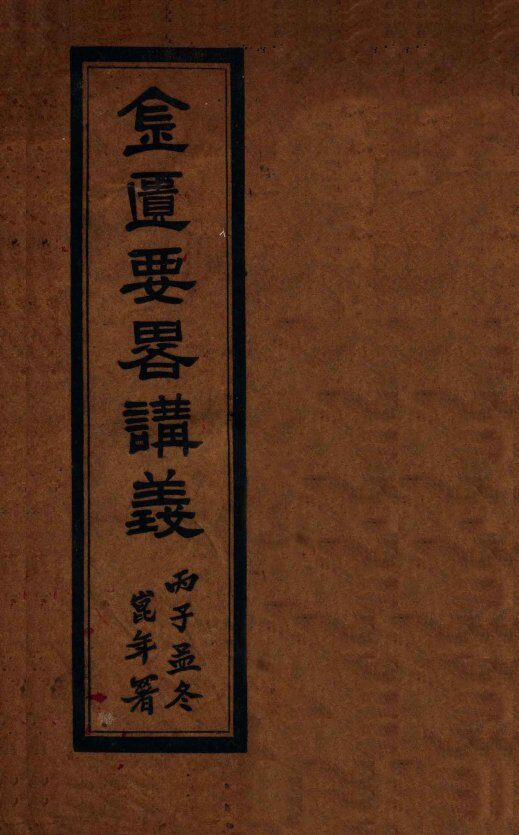 金匱要畧講義
丙子孟冬
崑年署